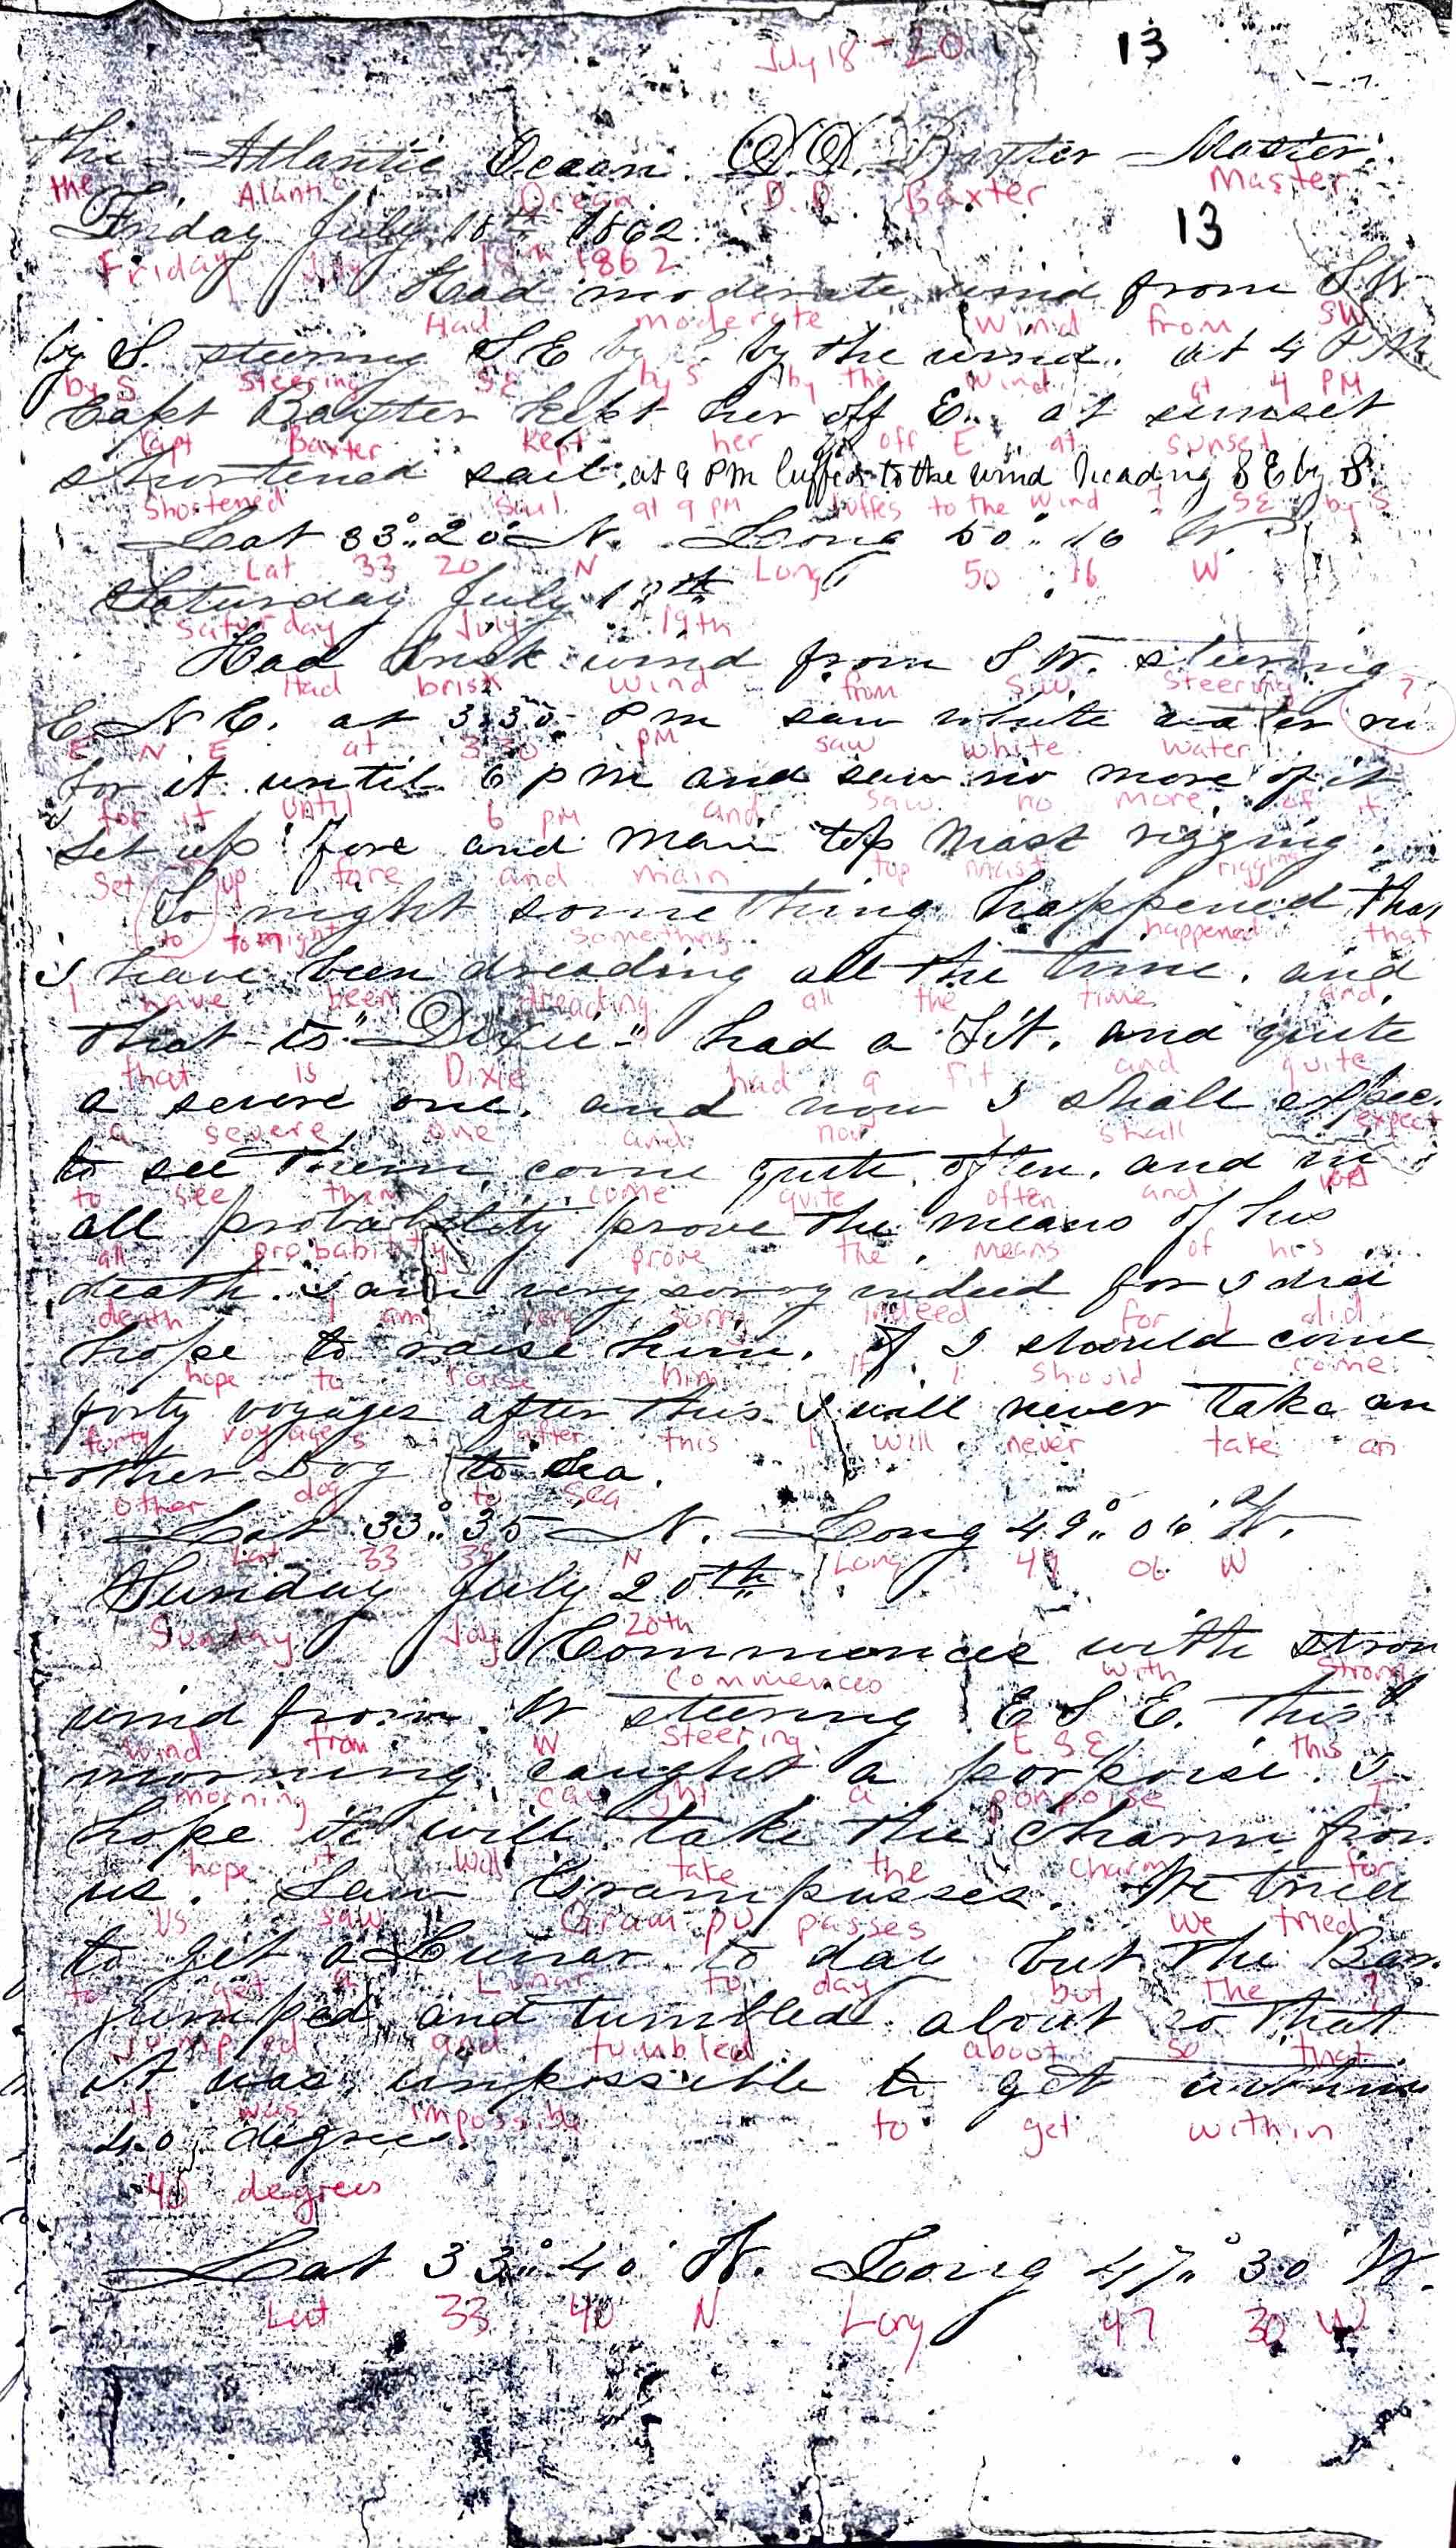 July 18 - 20 13
the Atlantic Ocean. D.D. Baxter Master.
the Alantic Ocean D.D. Baxter Master
Friday July 18th 1862. 13
Friday July 18th 1862
Had moderate wind from SW
Had moderate wind from SW
by S. steering SE by S. by the wind. at 4 PM
by S steering SE by S by the wind at 4 PM
Capt Baxter kept her off E. at sunset
Capt Baxter kept her off E at sunset
shortened sail. at 9 PM luffed to the wind heading SE by S.
Shortened Sail at 9 PM luffes to the wind ? SE by S
Lat 33°.. 20 N. Long 50°.. 16 W
Lat 33 20 N Long 50 16 W
Saturday July 19th
Saturday July 19th
Had brisk wind from SW. steering
Had brisk wind from SW Steering ?
E N E. at 3.30 PM saw white water
E N E at 3 30 PM saw white water
for it until 6 PM and saw no more of it
for it until 6 PM and saw no more of it
set up fore and main top mast rigging.
Set up fore and main top mast rigging
To night something happened that
to tonight something happened that
I have been dreading all the time. and
I have been dreading all the time and
that is "Dixie" had a Fit. and quite
that is Dixie had a fit and quite
a severe one. and now I shall expec
a severe one and now I shall expect
to see them come quite often. and in
to see them come quite often and
all probability prove the means of his
all probability prove the means of his
death. I am very sorry indeed for I did
death I am very sorry indeed for I did
hope to raise him. If I should come
hope to raise him if I should come
forty voyages after this I will never take an
forty voyages after this I will never take an
other Dog to Sea.
other dog to sea
Lat 33°.. 35 N. Long 49°.. 06' W.
Lat 33 35 N Long 49 06 W
Sunday July 20th
Sunday July 20th
Commences with stron
Commences with Strong
wind from W steering E S E. This
wind from W Steering E S E this
morning caught a porpoise. I
morning caught a porpoise I
hope it will take the charm from
hope it will take the charm for
us. Saw Grampusses. We tried
us saw Gram pu passes we tried
to get a Lunar to day but the Bar.
to get a Lunar to day but the ?
jumped and tumbled about so that
jumped and tumbled about so that
it was impossible to get within
it was impossible to get within
40 degrees.
40 degrees
Lat 33°.. 40' N. Long 47°.. 30 W.
Lat 33 40 N Long 47 30 W